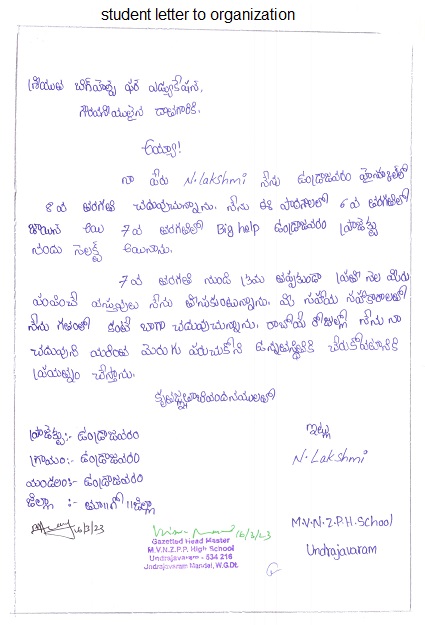 student letter to organization
శ్రీయుత బిగ్‌హెల్ప్ ఫర్ ఎడ్యుకేషన్,
గౌరవనీయులైన దాతగారికి.
అయ్యా!
నా పేరు N. Lakshmi నేను ఉండ్రాజవరం హైస్కూల్‌లో
8వ తరగతి చదువుచున్నాను. నేను ఈ పాఠశాలలో 6వ తరగతిలో
జాయిన్ అయి 7వ తరగతిలో Big help ఉండ్రాజవరం ప్రాజెక్టు
నందు సెలక్ట్ అయినాను.
7వ తరగతి నుండి క్రమం తప్పకుండా ప్రతి నెల మీరు
పంపించే వస్తువులు నేను తీసుకుంటున్నాను. మీ సహాయ సహకారాలతో
నేను గతంలో కంటే బాగా చదువుచున్నాను. రాబోయే రోజుల్లో నేను నా
చదువుని మరింత మెరుగు పరుచుకొని ఉన్నతస్థితికి చేరుకోవటానికి
ప్రయత్నం చేస్తాను.
కృతజ్ఞతాభివందనములతో
ప్రాజెక్టు:- ఉండ్రాజవరం
ఇట్లు
గ్రామం:- ఉండ్రాజవరం
N. Lakshmi
మండలం:- ఉండ్రాజవరం
జిల్లా :- తూ||గో||జిల్లా
16/3/23
16/3/23
Gazetted Head Master
M.V.N.Z.P.P. High School
Undrajavaram - 534 216
Undrajavaram Mandal, W.G.Dt.
M.V.N.Z.P.H. School
Undrajavaram